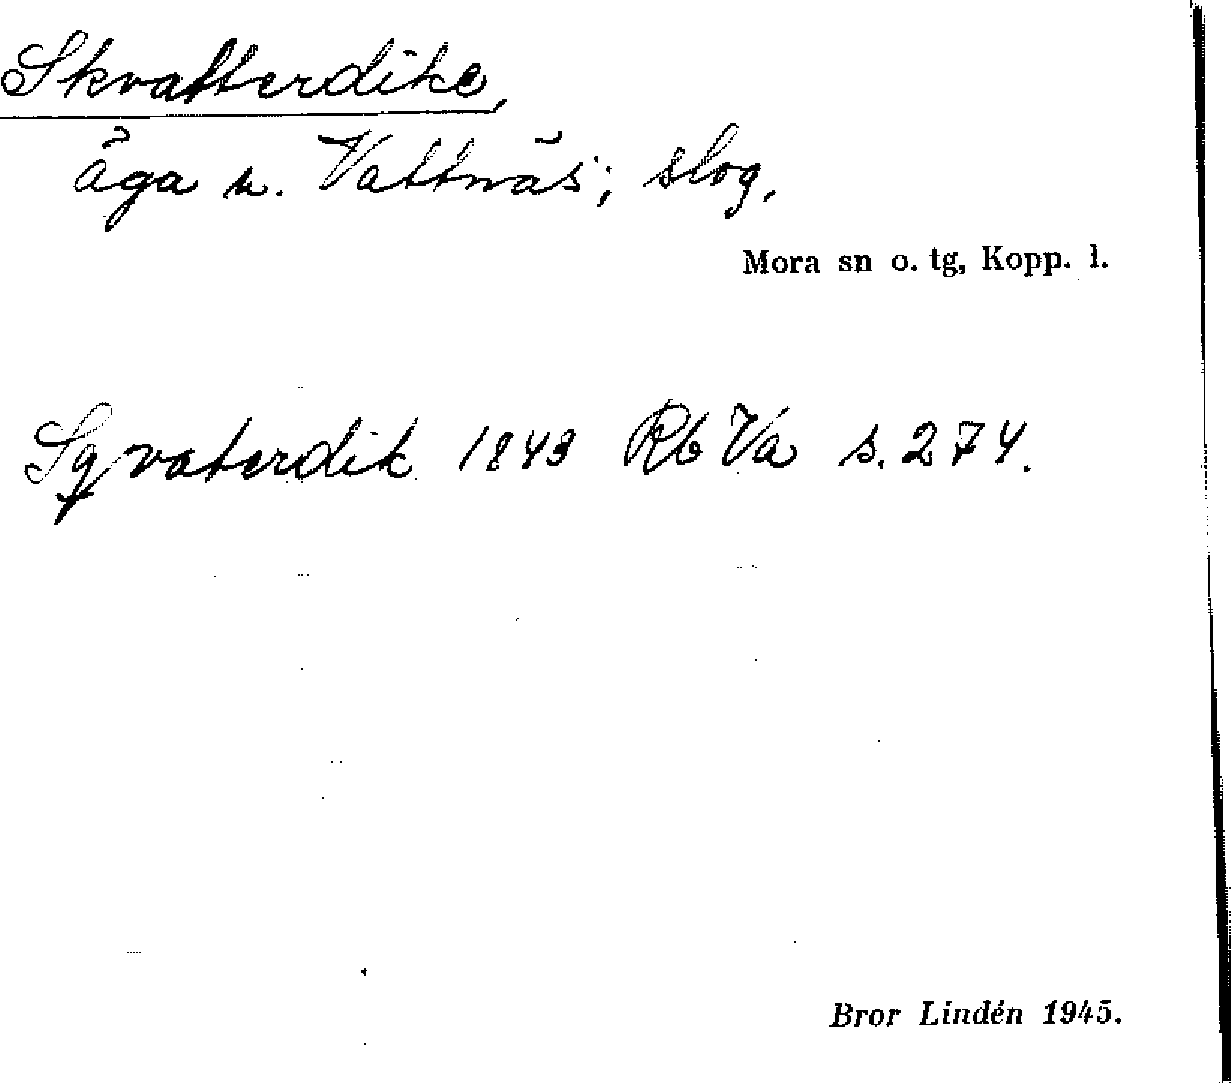 Skvatterdike,
äga u. Vattnäs; slog,
Mora sn o. tg, Kopp. l.
Sqvaterdik 1843 Rb Va s. 274.
Bror Lindén 1945.